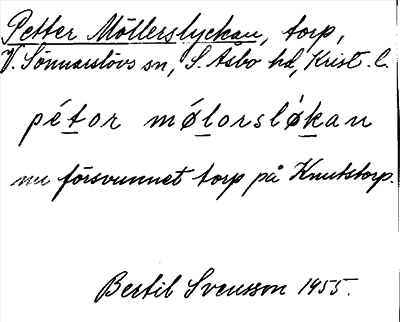 Petter Möllerslyckan, torp,
V. Sönnarslövs sn, S. Åsbo hd, Krist. l.
pétor mø̀lorsløkan
nu försvunnet torp på Knutstorp.
Bertil Svensson 1955.